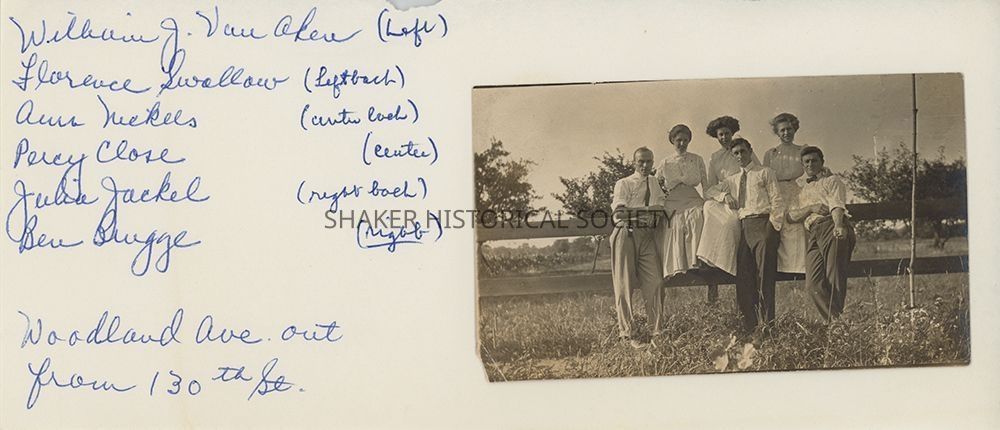 William J. Van Aken (Left)
Florence Swallow (left back)
Ann Nickels (center back)
Percy Close (center)
Julia Jackel (right back)
Ben Brugge (right)
SHAKER HISTORICAL SOCIETY
Woodland Ave. out
from 130th St.